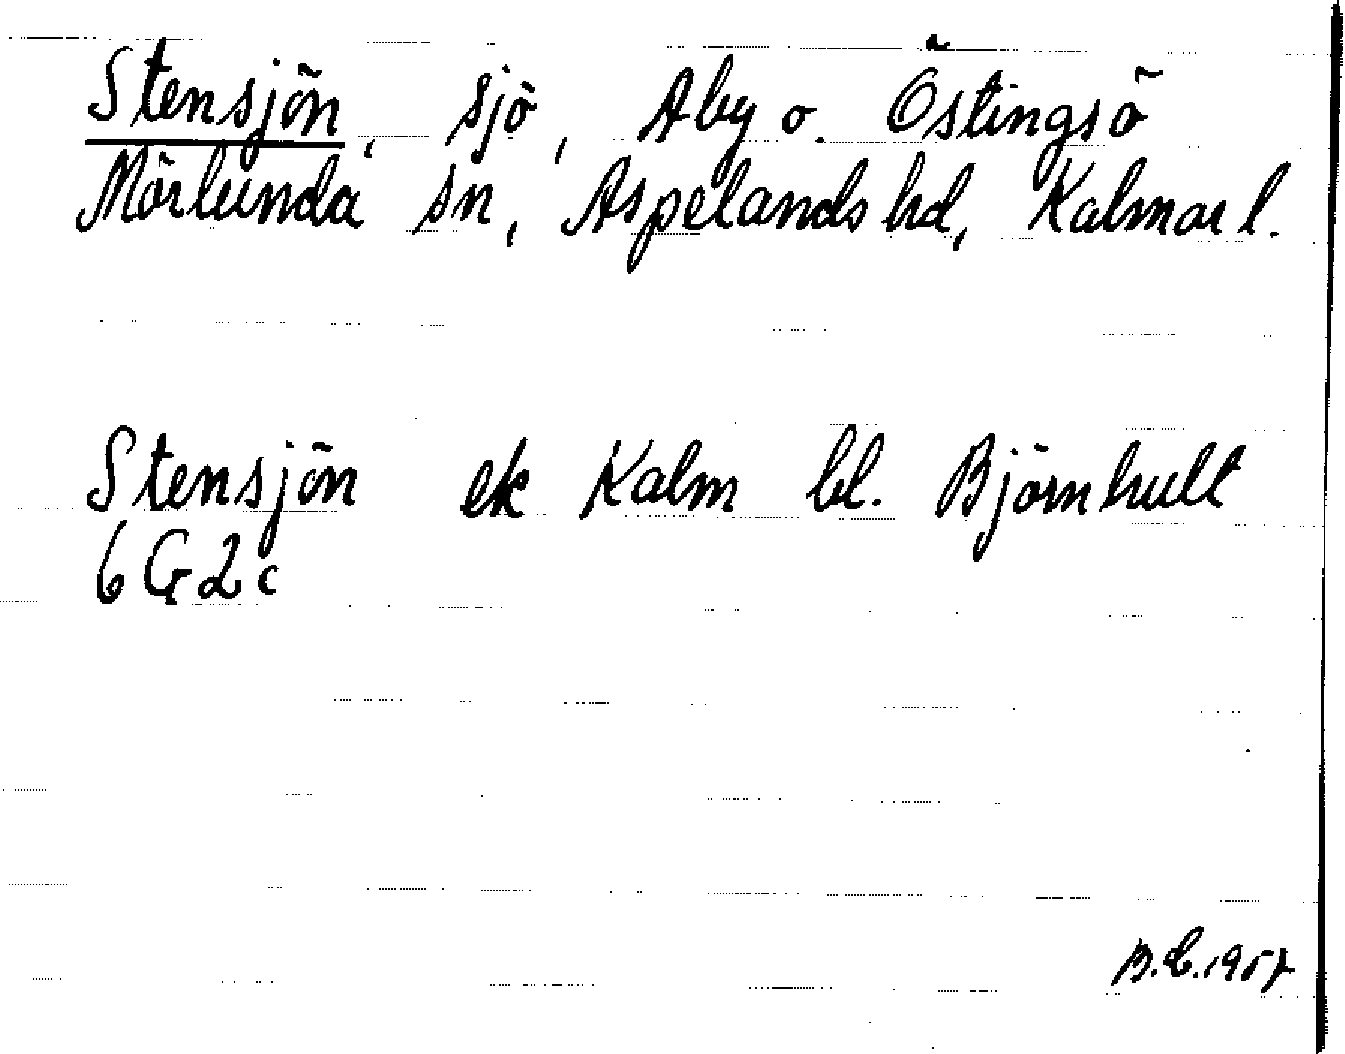 Stensjön, sjö, Aby o. Östingsö
Mörlunda sn, Aspelands hd, Kalmar l.
Stensjön ek Kalm bl. Björnhult
6 G 2 c
B.E. 1957